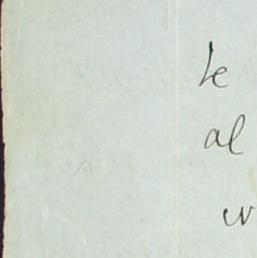 le
al